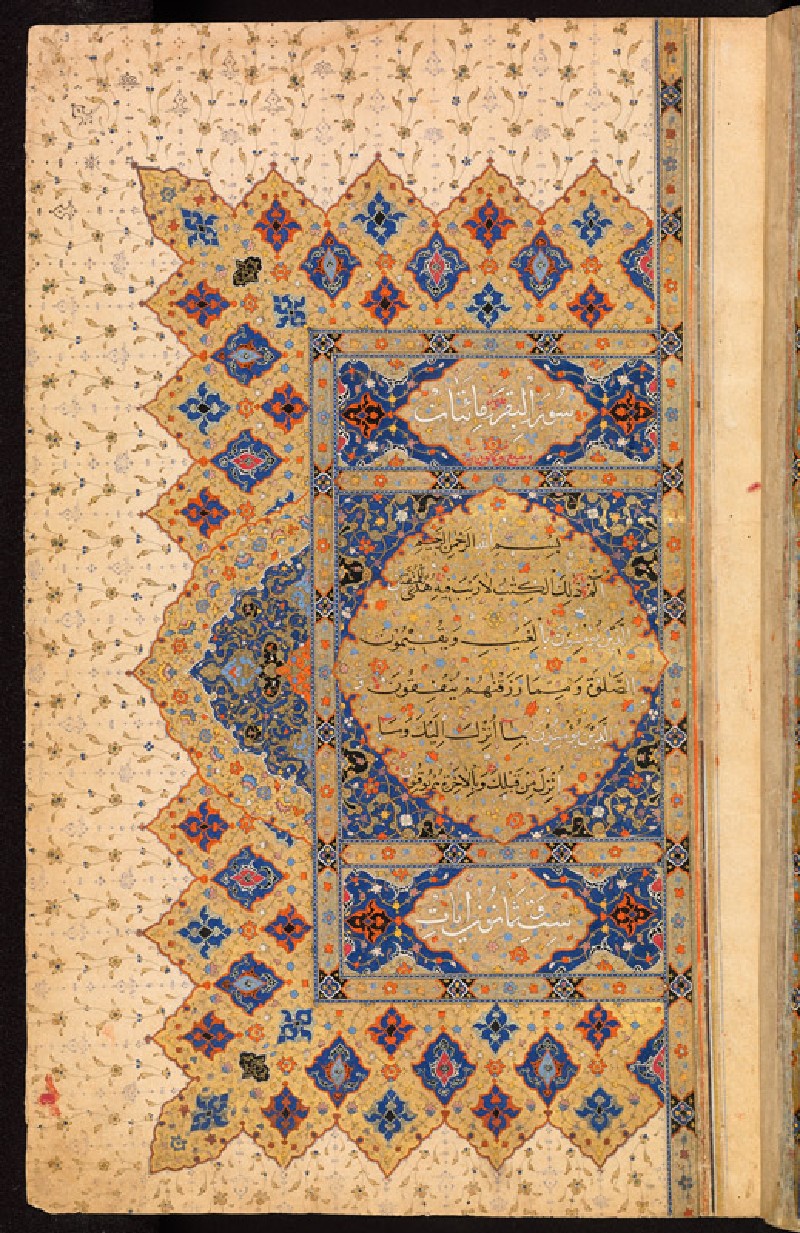 سورة البقرة مائتان
بسم الله الرحمن الرحيم
الم ذلك الكتب لا ريب فيه هدى للمتقين
الذين يؤمنون بالغيب ويقيمون
الصلوة ومما رزقنهم ينفقون
الذين يؤمنون بما أنزل إليك وما
أنزل من قبلك وبالآخرة هم يوقنون
ست وثمانون ايات